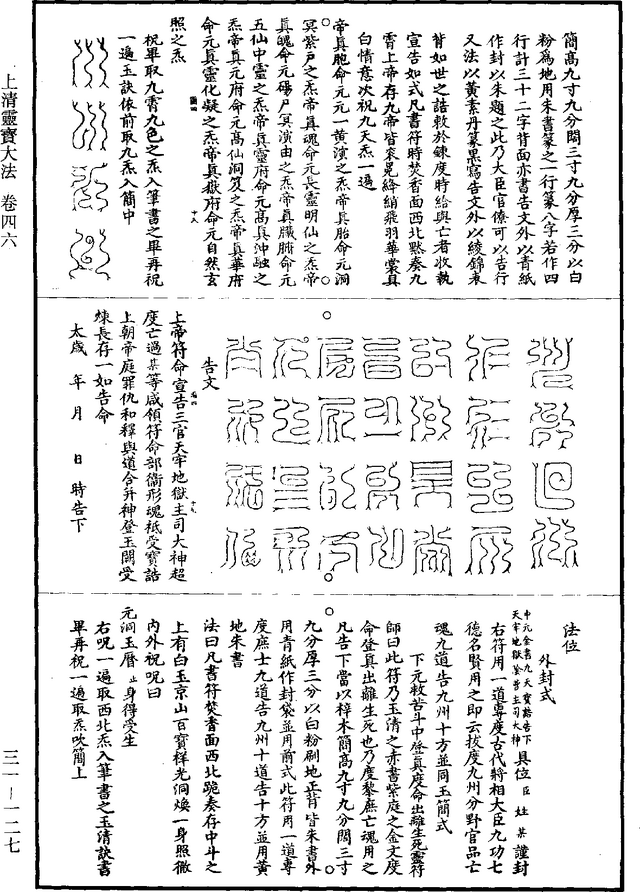 上清靈寶大法　卷四六
三一—一二七
簡高九寸九分闊三寸九分厚三分以白
粉爲地用朱書篆之一行篆八字若作四
行計三十二字背面亦書告文外以青紙
作封以朱題之此乃大臣官僚可以告行
又法以黃素丹篆墨寫告文外以綾錦束
背如世之誥敕於鍊度時給與亡者收執
宣告如式凡書符時焚香面西北默奏九
霄上帝存九帝皆衮冕絳綃飛羽華裳具
白情意次祝九天炁一遍
帝真胞命元元一黃演之炁帝真胎命元洞
冥紫戶之炁帝真魂命元長靈明仙之炁帝
真魄命元碭尸冥演由之炁帝真臟腑命元
五仙中靈之炁帝真靈府命元高真沖融之
炁帝真元府命元高仙洞笈之炁帝真華府
命元真靈化凝之炁帝真嶽府命元自然玄
照之炁
祝畢取九霄九色之炁入筆書之畢再祝
一遍玉訣依前取九炁入簡中
告文
上帝符命宣告三官天牢地獄主司大神超
度亡過某等咸領符命部衞形魂祗受寶誥
上朝帝庭罪仇和釋與道合升神登玉闕受
煉長存一如告命
太歲　年　月　日　時告下
法位
外封式
中元金書九天寶誥告下
天牢地獄陰曹主司大神　具位臣姓某謹封
右符用一道專度古代將相大臣九功七
德名賢用之即云拔度九州分野官品亡
魂九道告九州十方並同玉簡式
下元敕苦斗中登真度命出離生死靈符
師曰此符乃玉清之赤書紫庭之金文度
命登真出離生死也乃度黎庶亡魂用之
凡告下當以梓木簡高九寸九分闊三寸
九分厚三分以白粉刷地正背皆朱書外
用青紙作封袋並用前式此符用一道專
度庶士九道告九州十道告十方並用黃
地朱書
法曰凡書符焚香面西北跪奏存中斗之
上有白玉京山百寶祥光洞煥一身照徹
內外祝呪曰
元洞玉曆止身得受生
右呪一遍取西北炁入筆書之玉清訣書
畢再祝一遍取炁吹簡上